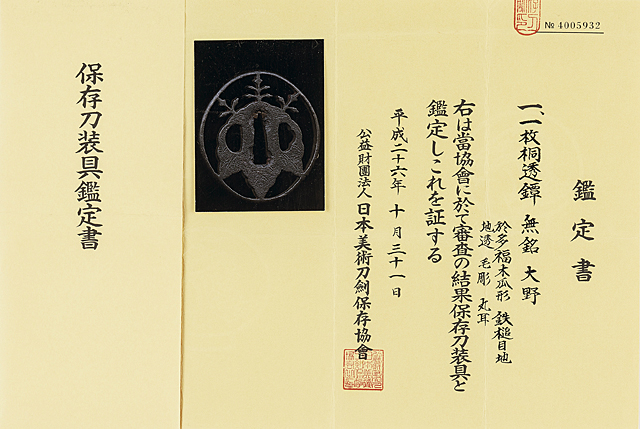 № 4005932
鑑定書
一、一枚桐透鐔 無銘 大野
於多福木瓜形 鉄槌目地
地透 毛彫 丸耳
右は當協會に於て審査の結果保存刀装具と
鑑定しこれを証する
平成二十六年 十月三十一日
公益財團法人 日本美術刀劍保存協會
保存刀装具鑑定書